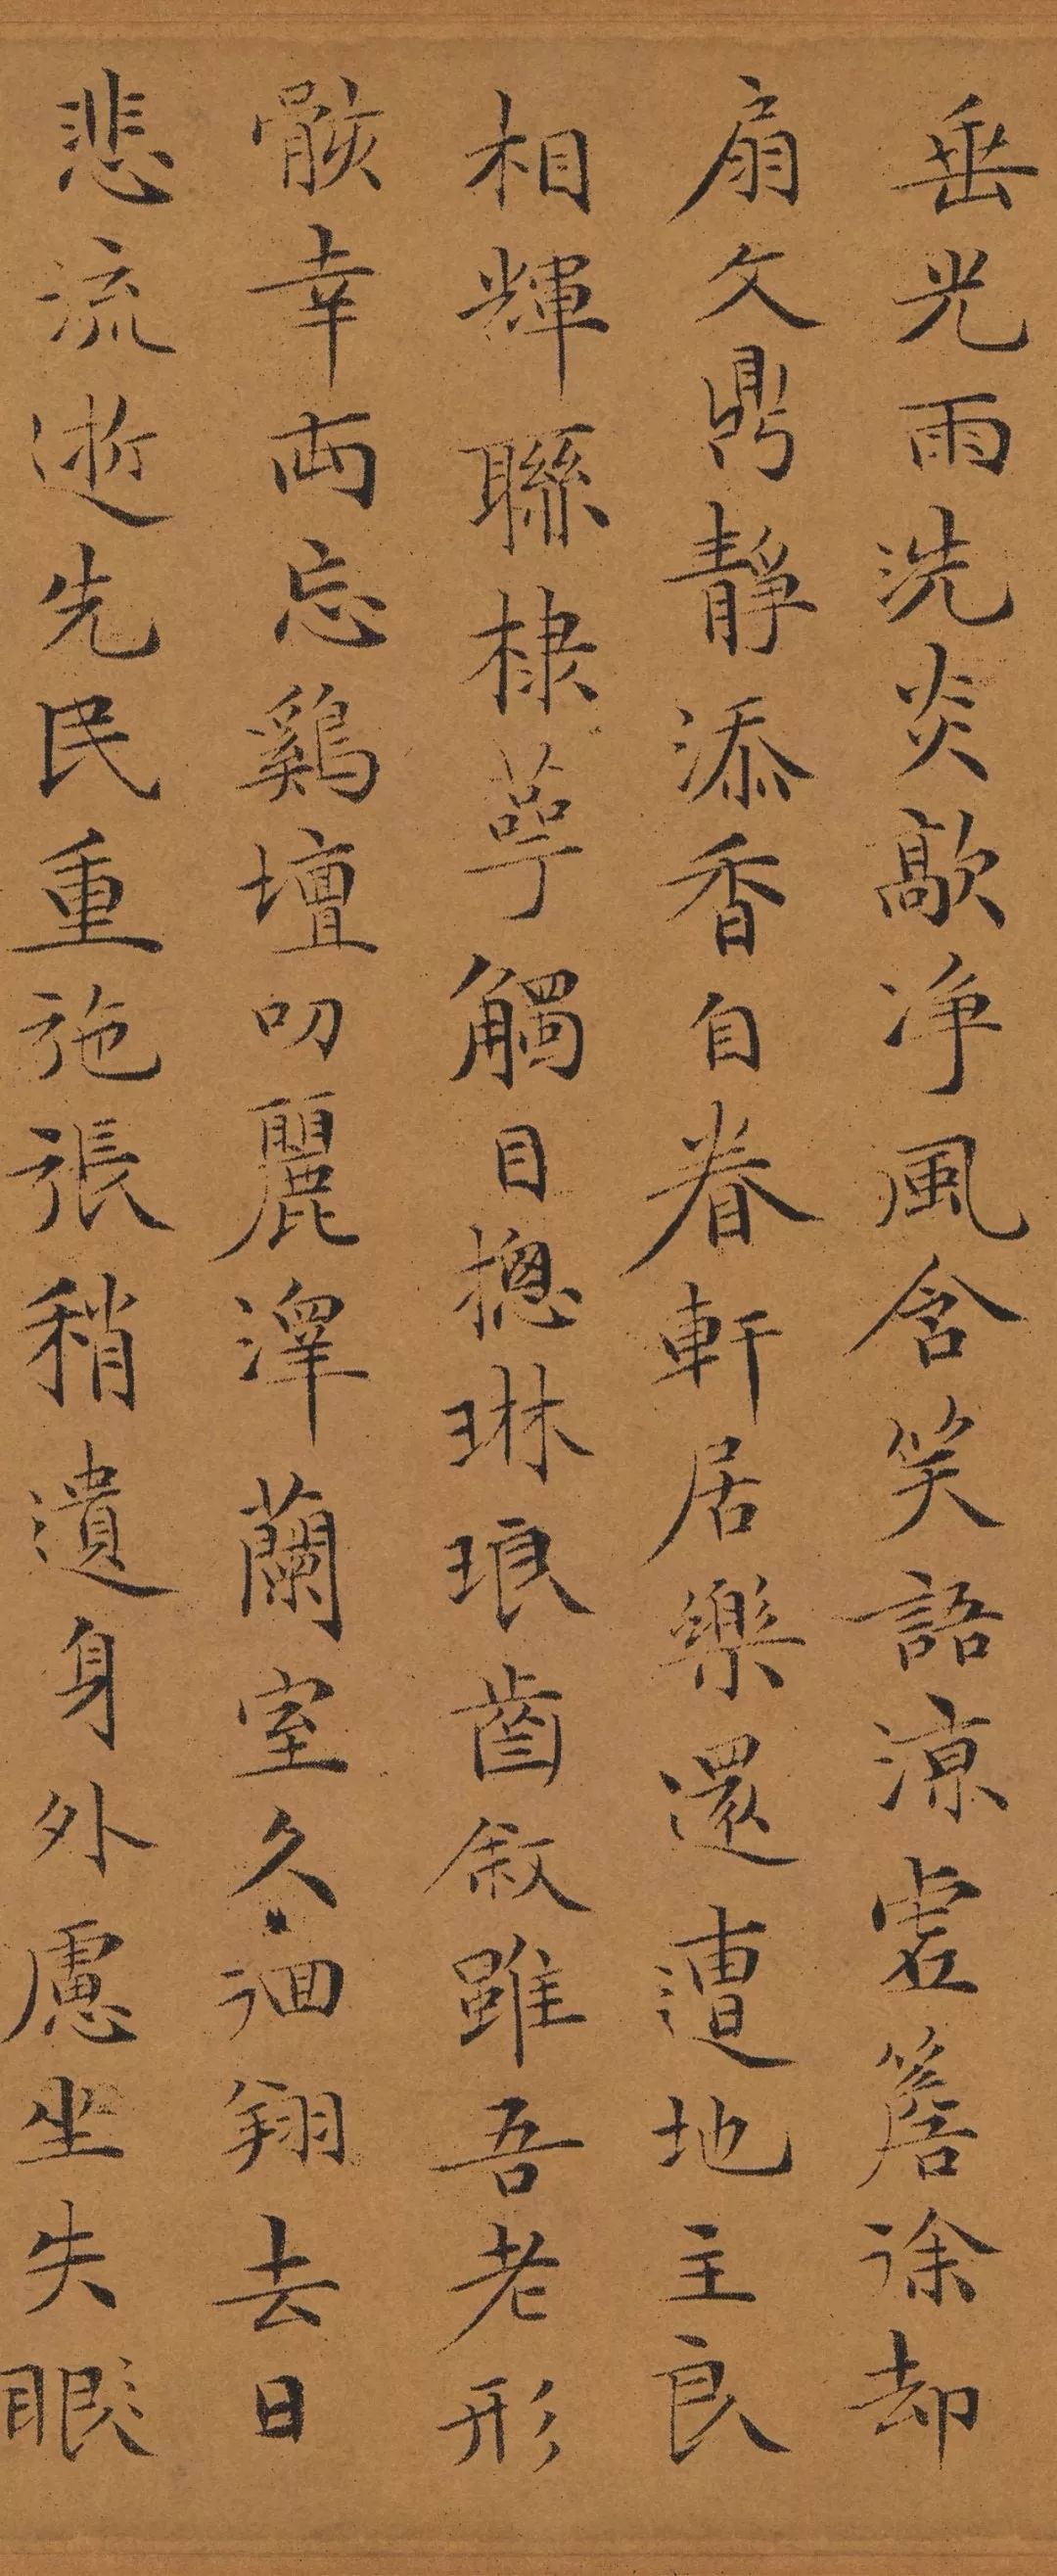 垂光雨洗炎歊净風含笑語涼虚簷徐却
扇文鼎靜添香自眷軒居樂還遭地主良
相輝聯棣萼觸目揔琳琅齒敘雖吾老形
骸幸両忘鷄壇叨麗澤蘭室久徊翔去日
悲流逝先民重施張稍遺身外慮坐失眼